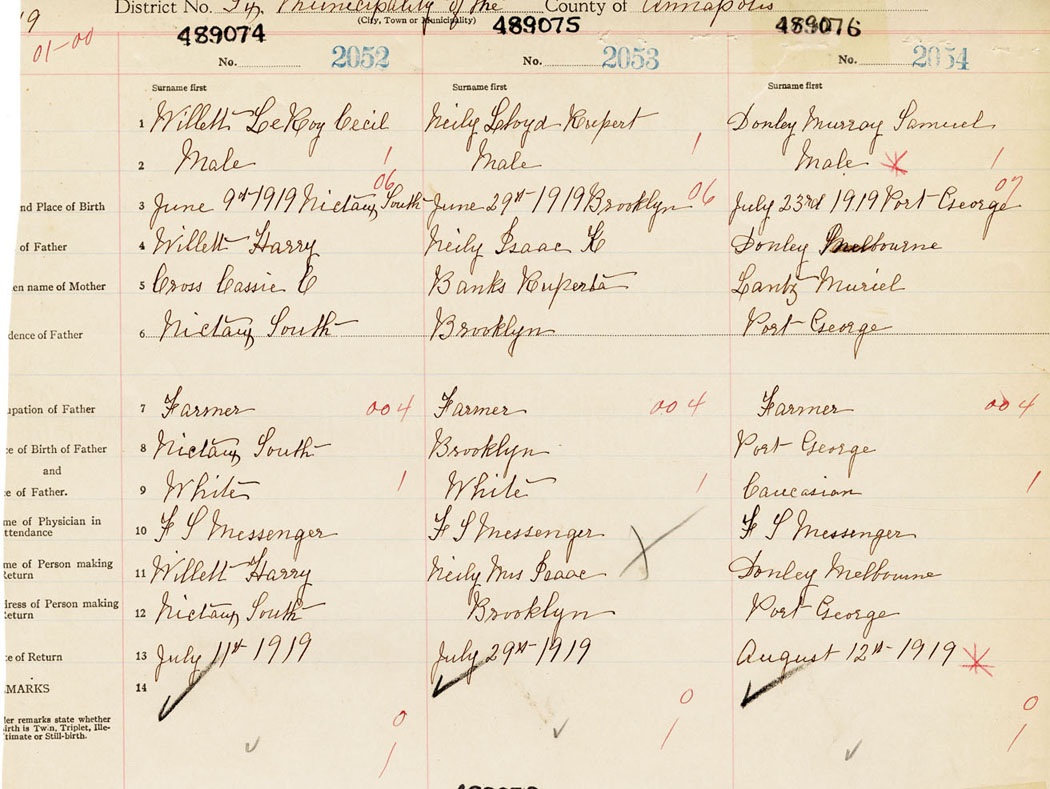 District No. Municipality of the County of Annapolis
(City, Town or Municipality)
19
01-00
489074 489075 489076
No. 2052 No. 2053 No. 2054
Surname first Surname first Surname first
1 Willett LeRoy Cecil Neily Lloyd Rupert Donley Murray Samuel
2 Male 1 Male 1 Male 1
06 06 07
nd Place of Birth 3 June 9th 1919 Nictaux South June 29th 1919 Brooklyn July 23rd 1919 Port George
of Father 4 Willett Harry Neily Isaac R Donley Melbourne
en name of Mother 5 Cross Cassie C Banks Ruperta Lantz Muriel
dence of Father 6 Nictaux South Brooklyn Port George
upation of Father 7 Farmer 004 Farmer 004 Farmer 004
ce of Birth of Father 8 Nictaux South Brooklyn Port George
and
ce of Father. 9 White 1 White 1 Caucasian 1
me of Physician in
ttendance 10 F S Messenger F S Messenger F S Messenger
me of Person making
Return 11 Willett Harry Neily Mrs Isaac Donley Melbourne
dress of Person making
Return 12 Nictaux South Brooklyn Port George
te of Return 13 July 11th 1919 July 29th 1919 August 12th 1919
EMARKS 14
der remarks state whether
irth is Twin, Triplet, Ille-
timate or Still-birth.
0 0 0
1 1 1